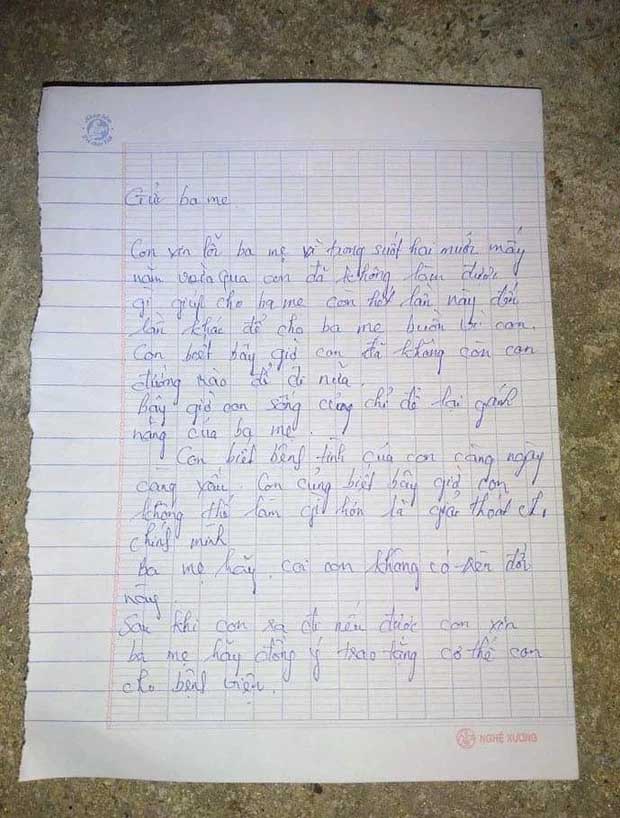 Gửi ba mẹ
Con xin lỗi ba mẹ vì trong suốt hai mươi mấy
năm vừa qua con đã không làm được
gì giúp cho ba mẹ con hết lần này đến
lần khác để cho ba mẹ buồn vì con.
Con biết bây giờ con đã không còn con
đường nào để đi nữa.
Bây giờ con sống cũng chỉ để lại gánh
nặng của ba mẹ.
Con biết bệnh tình của con càng ngày
càng xấu. Con cũng biết bây giờ con
không thể làm gì hơn là giải thoát ch
chính mình
Ba mẹ hãy coi con không có trên đời
này.
Sau khi con ra đi nếu được con xin
ba mẹ hãy đồng ý trao tặng cơ thể con
cho bệnh viện.
NGHỆ XƯƠNG